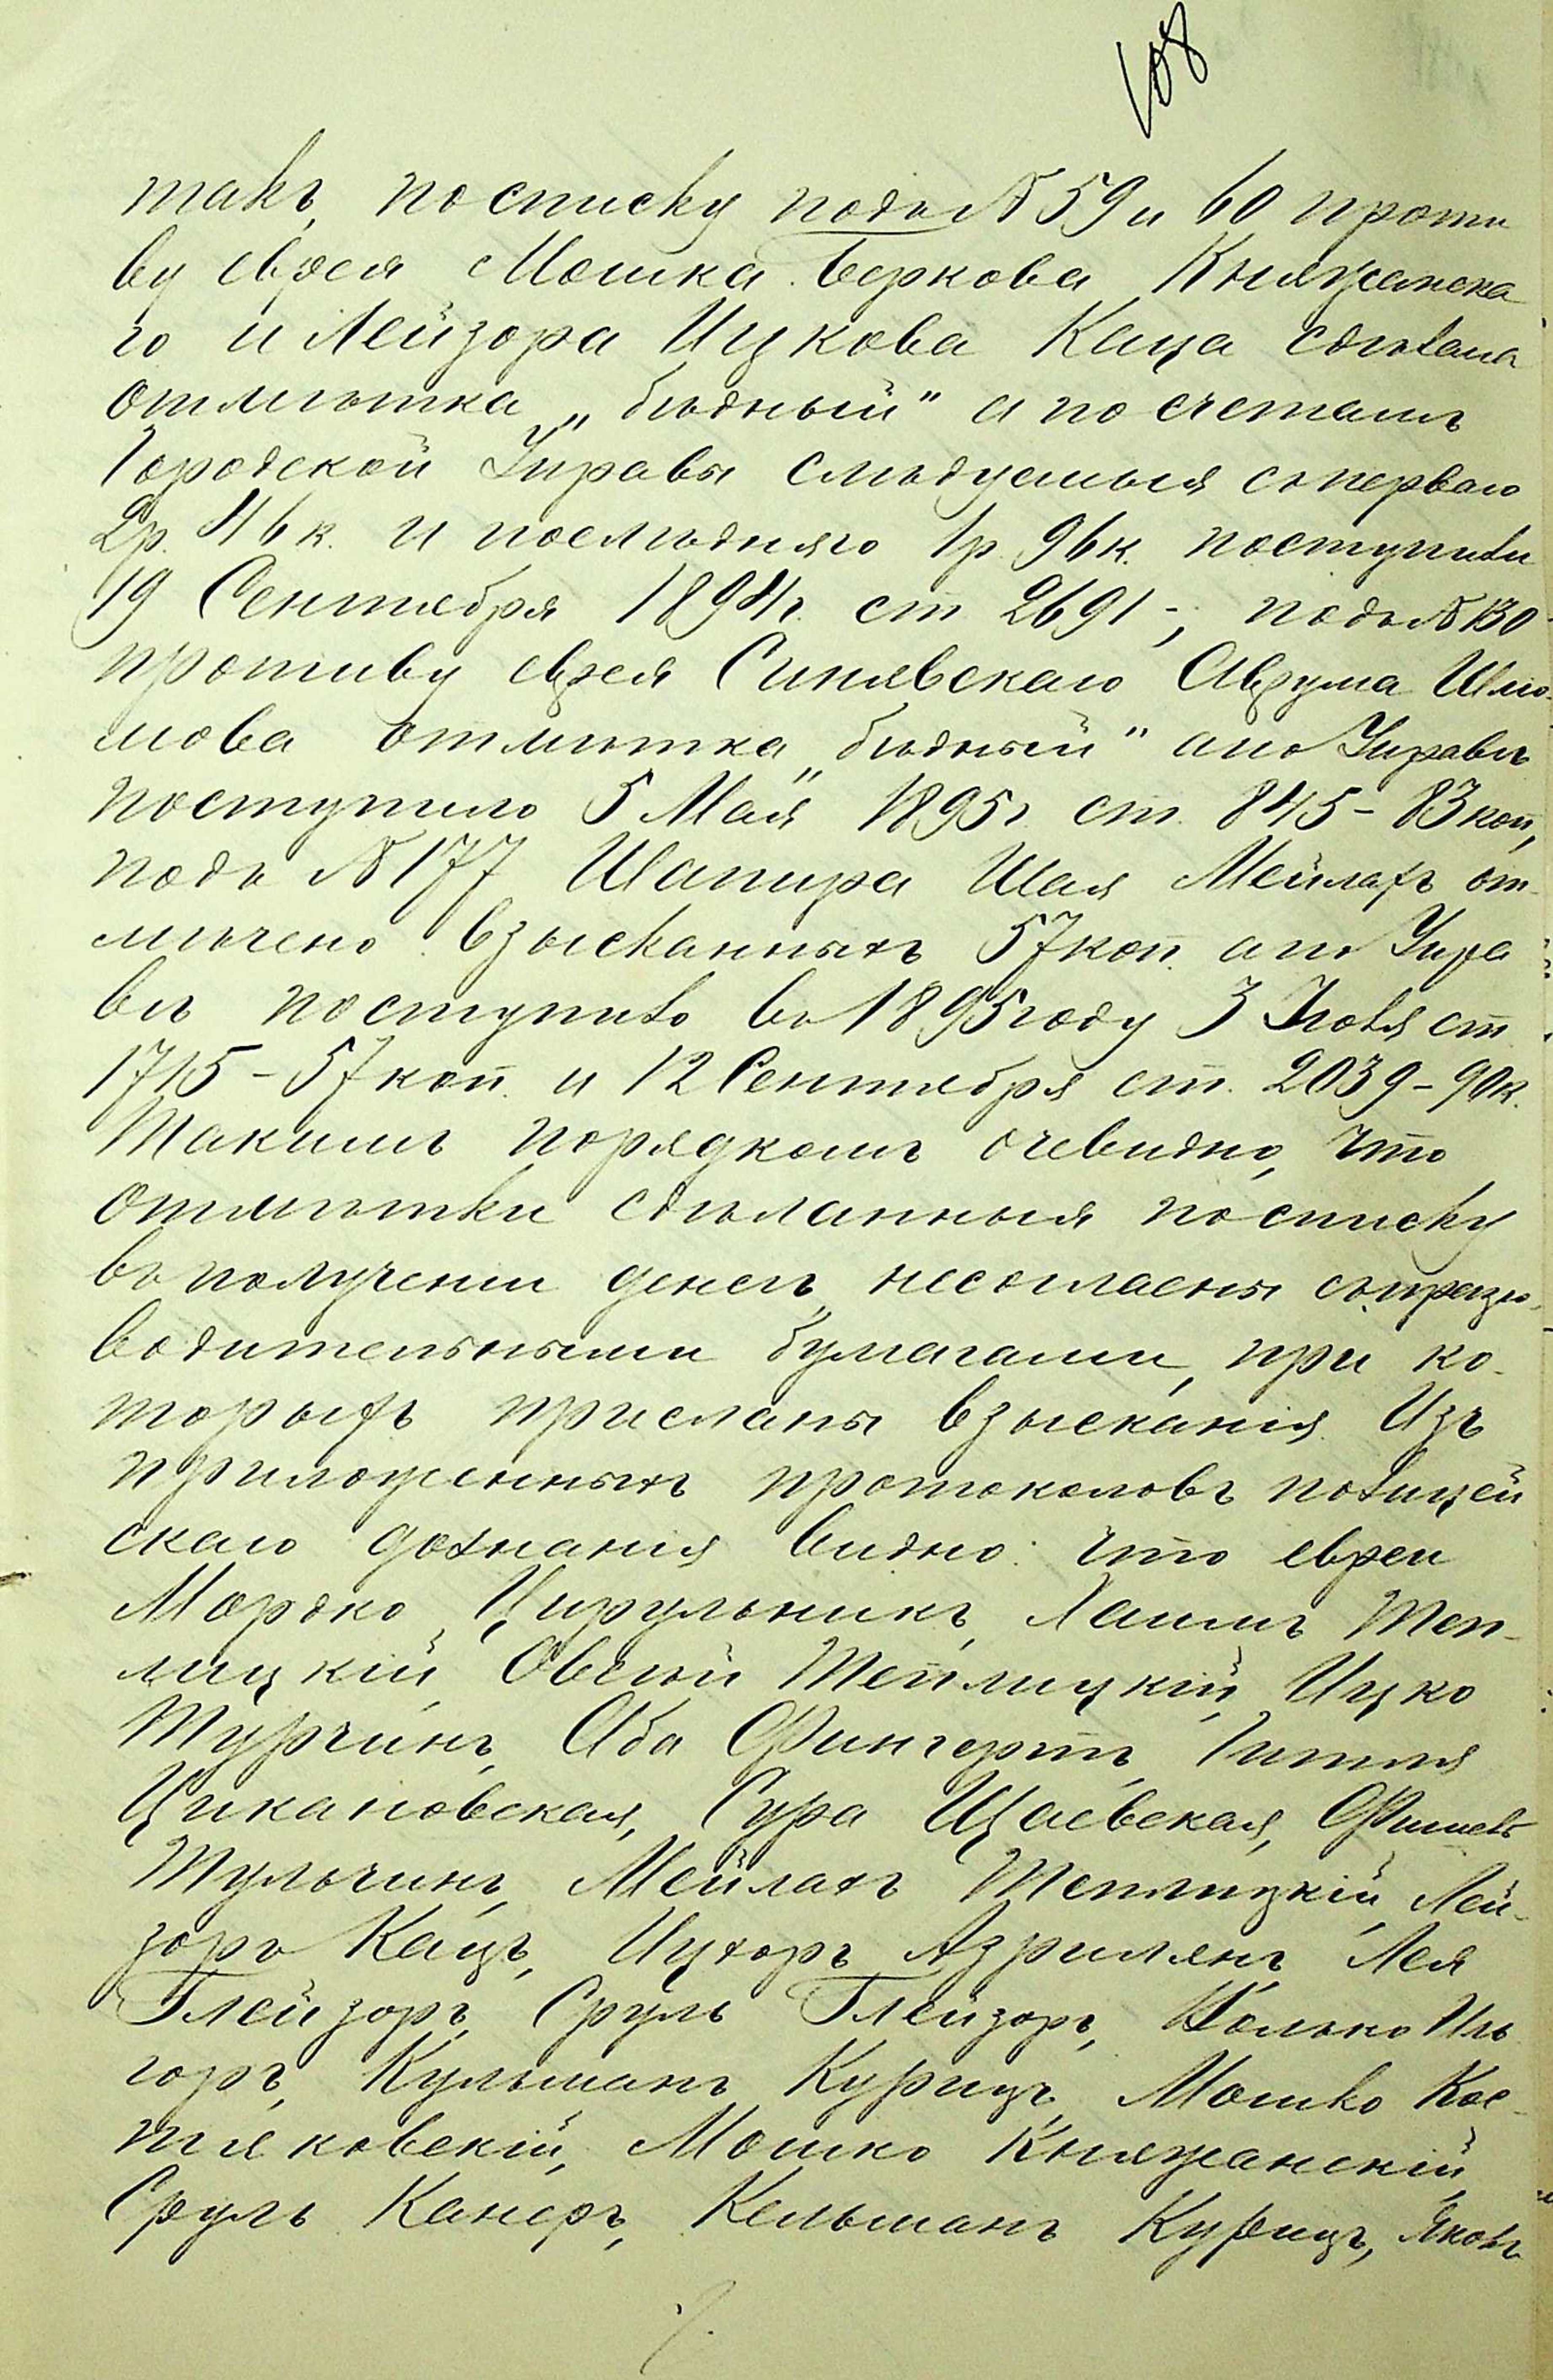 108
такъ, по списку подъ № 59 и 60 проти
ву еврея Мошка Беркова Княжанска
го и Лейзора Ицкова Каца сдѣлана
отмѣтка „бѣдный" а по счетамъ
Городской Управы слѣдуемыя съ перваго
2 р. 46 к. и послѣдняго 1 р. 96 к. поступили
19 Сентября 1894 г. ст. 2691 -, подъ № 130
противу еврея Синявскаго Аврума Шлю-
мова отмѣтка „бѣдный" а по Управѣ
поступило 5 Мая 1895 г. ст. 845 - 83 коп,
подъ № 177 Шапира Шая Мейлахъ от-
мѣчено взысканныхъ 57 коп. а по Упра
вѣ поступило въ 1895 году 3 Іюля ст
1715 - 57 коп. и 12 Сентября ст. 2039 - 90 к.
Такимъ порядкомъ очевидно, что
отмѣтки сдѣланныя по списку
въ получении денегъ, несогласны съ препро-
водительными бумагами, при ко-
торыхъ присланы взысканія. Изъ
приложенныхъ протоколовъ полицей
скаго дознанія видно: что евреи
Мордко Цирульникъ, Хаимъ Теп-
лицкій, Овсѣй Теплицкій, Ицко
Турчинъ, Аба Фингертъ, Гитля
Цикановская, Сура Щаевская, Фишель
Тульчинъ, Мейлахъ Теплицкій, Лей-
зоръ Кацъ, Ицхоръ Азрилянъ, Лея
Глейзоръ, Сруль Глейзоръ, Волько Иль
горъ, Кульманъ Курицъ, Мошко Кос-
тяковскій, Мошко Княжанскій,
Сруль Канеръ, Кельманъ Курицъ, Яковъ